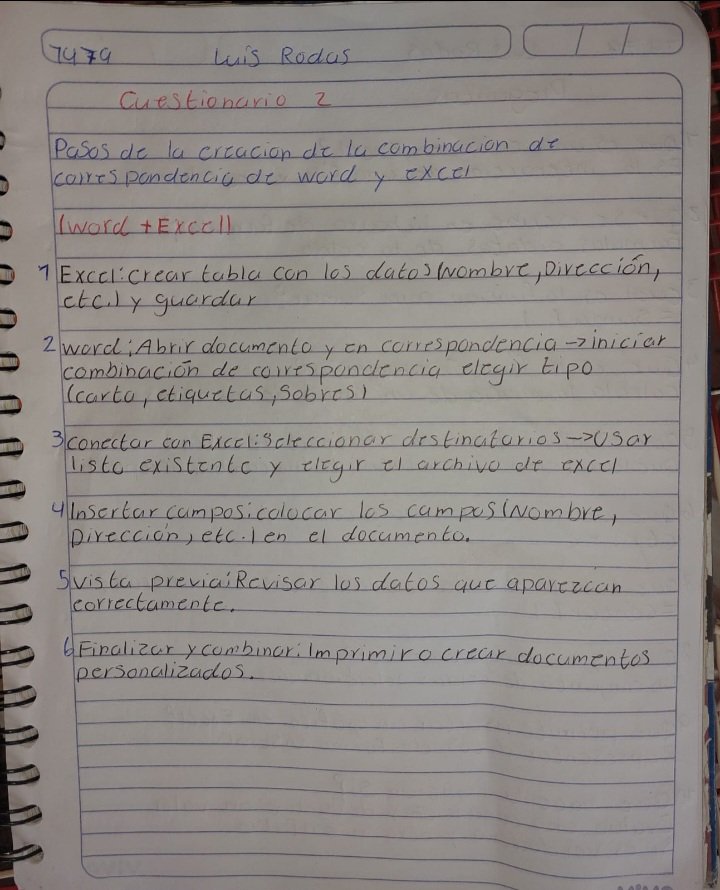 7479 Luis Rodas
Cuestionario 2
Pasos de la creacion de la combinacion de
correspondencia de word y excel
(word + Excel)
1 Excel: crear tabla con los datos (Nombre, Dirección,
etc.) y guardar
2 word: Abrir documento y en correspondencia → iniciar
combinación de correspondencia elegir tipo
(carta, etiquetas, sobres)
3 conectar con Excel: Seleccionar destinatarios → Usar
lista existente y elegir el archivo de excel
4 Insertar campos: colocar los campos (Nombre,
Dirección, etc.) en el documento.
5 vista previa: Revisar los datos que aparezcan
correctamente.
6 Finalizar y combinar: Imprimir o crear documentos
personalizados.